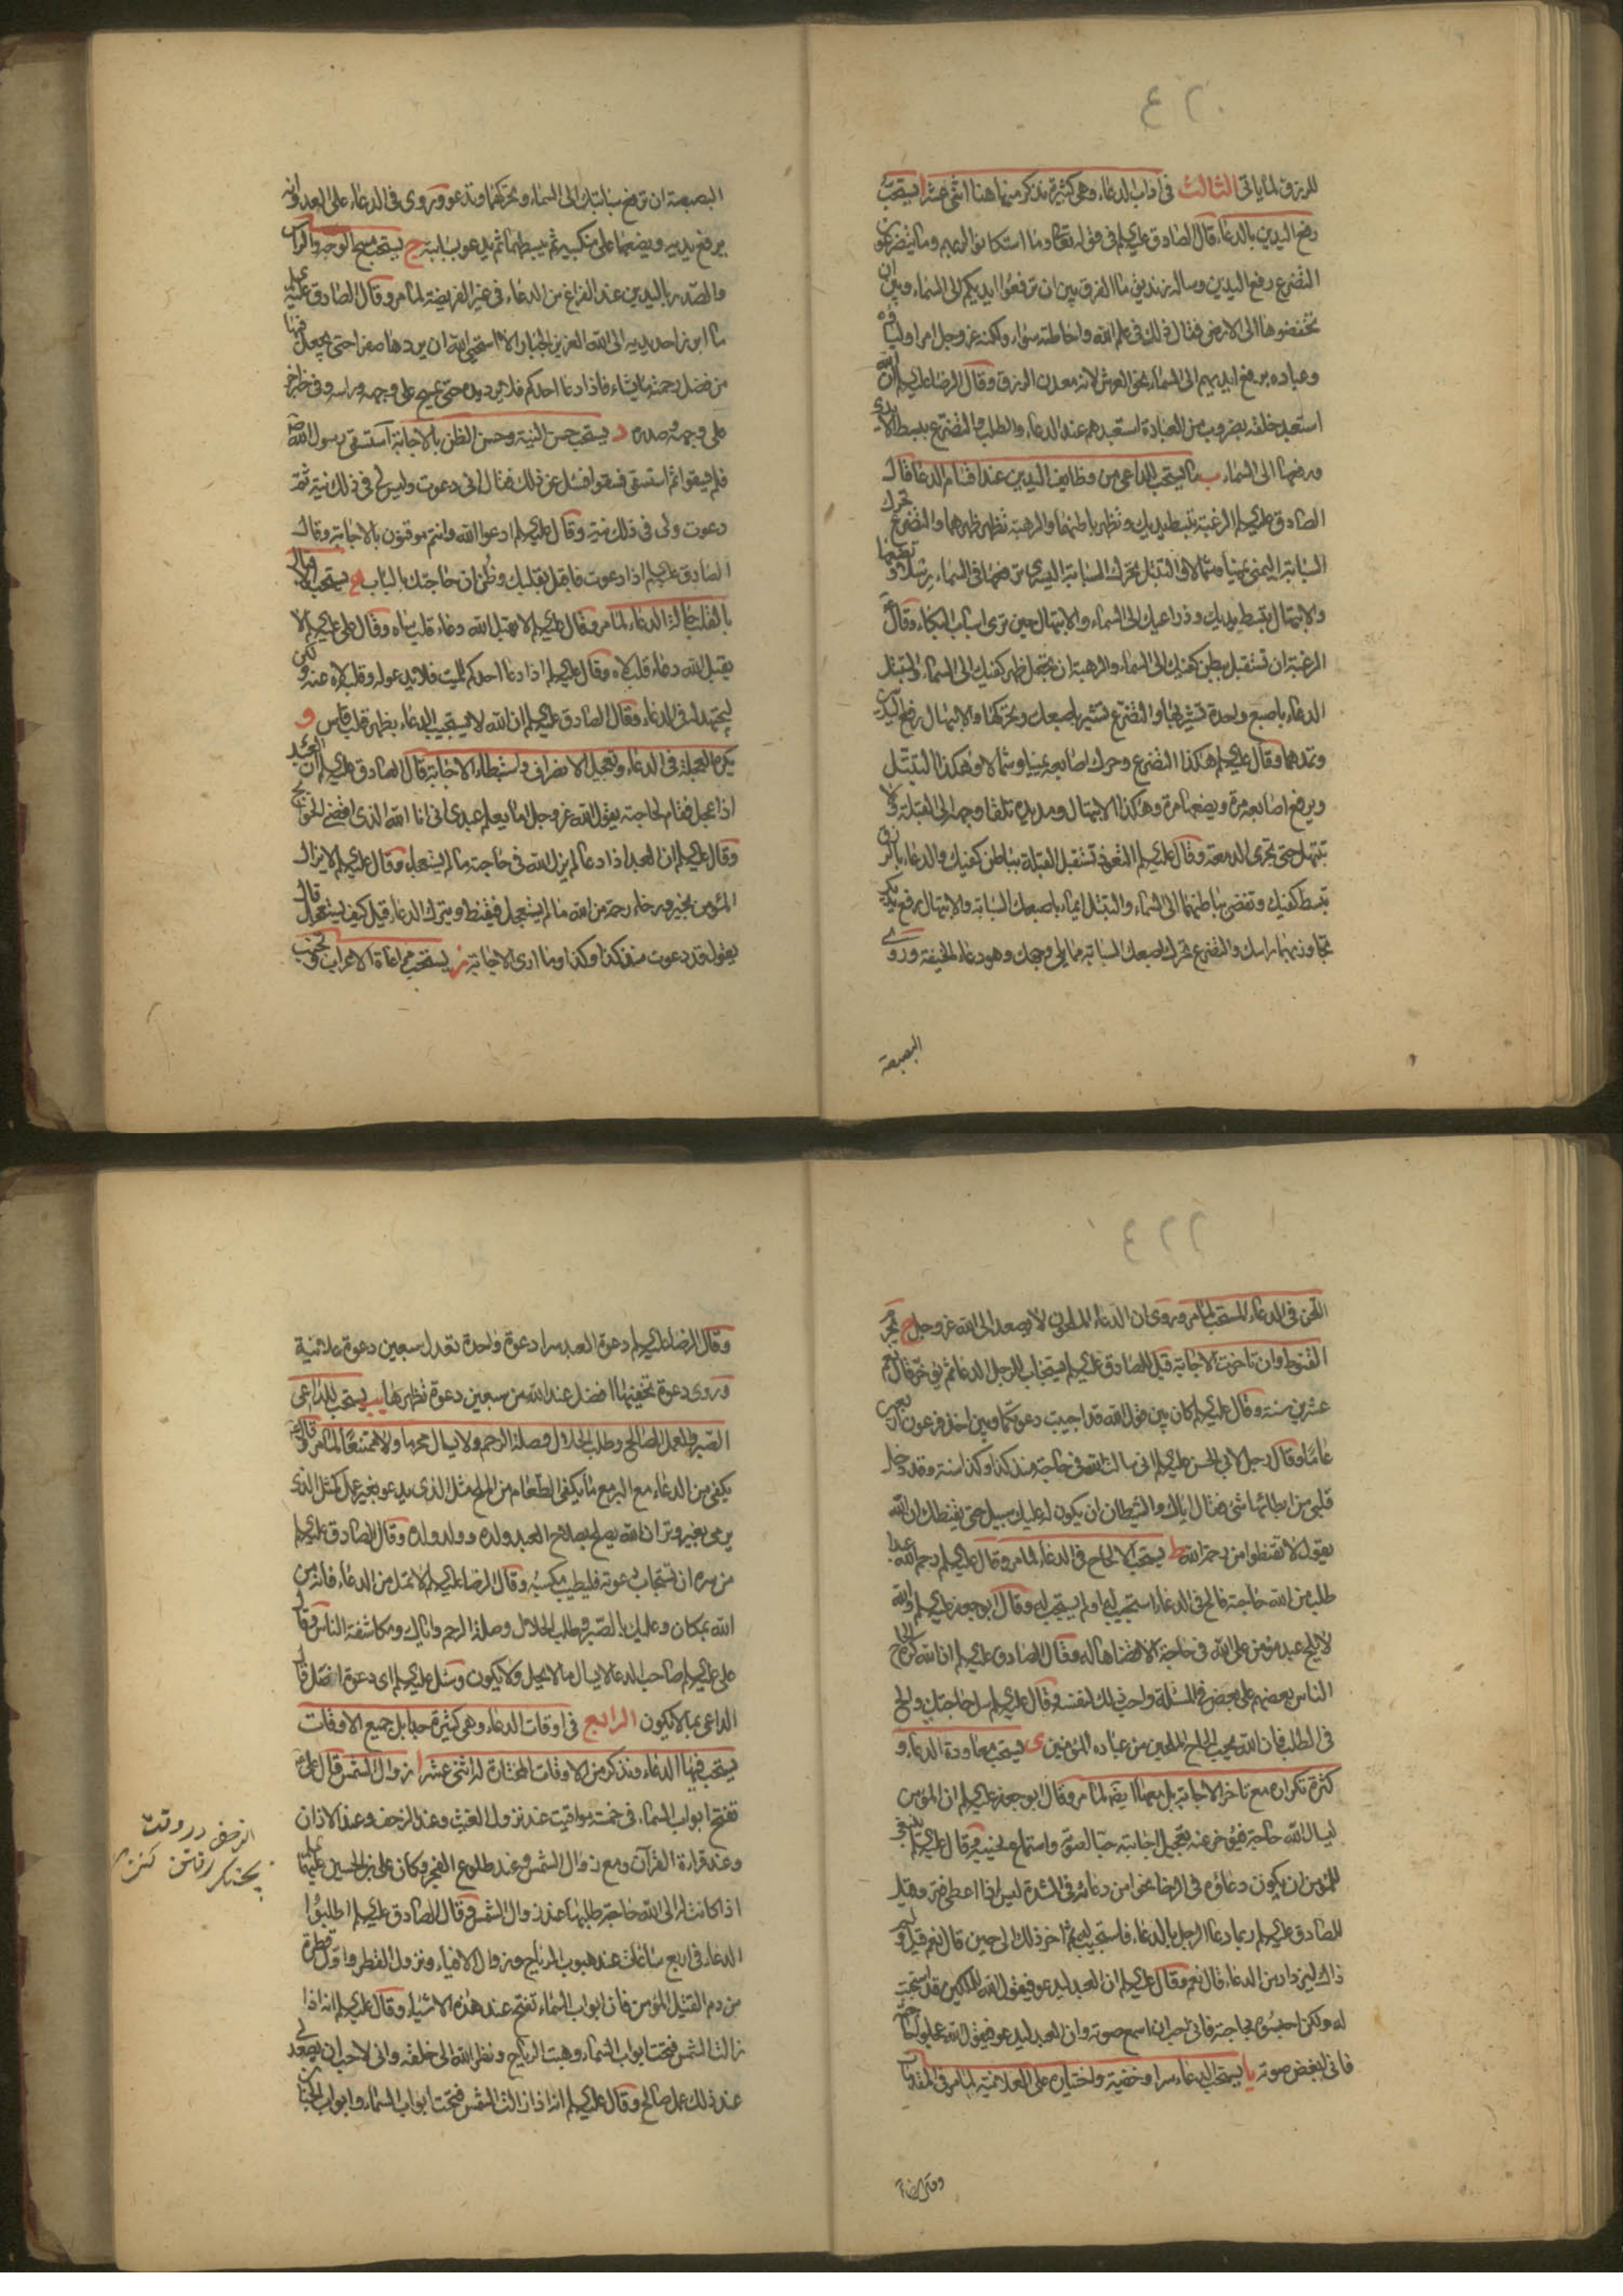 ٤٢٠
للرزق لما ياتى الثالث فى اداب الدعاء وهى كثيرة نذكر منها هنا اثنى عشر ا يستحب
رفع اليدين بالدعاء قال الصادق عليه السلم فى قوله تعالى وما استكانوا لربهم وما يتضرعون
التضرع رفع اليدين وساله زنديق ما الفرق بين ان ترفعوا ايديكم الى السماء وبين ان
تخفضوها الى الارض فقال ذلك فى علمه الله واحاطته سواء ولكنه عز وجل امر اولياءه
وعباده برفع ايديهم الى السماء نحو العرش لانه معدن الرزق وقال الرضا عليه السلم ان الله
استعبد خلقه بضروب من العبادة استعبدهم عند الدعاء والطلب والتضرع ببسط الايدى
ورفعها الى السماء ب ما يستحب للداعى من وظايف اليدين عند اقسام الدعا قال
الصادق عليه السلم الرغبة تبسط يديك وتظهر باطنهما والرهبة تظهر ظهرهما والتضرع تحرك
السبابة اليمنى يمينا وشمالا والتبتل تحرك السبابة اليسرى ترفعها فى السماء رسلا وتضعها
والابتهال تبسط يديك وذراعيك الى السماء والابتهال حين ترى اسباب البكاء وقال
الرغبة ان تستقبل ببطن كفيك الى السماء والرهبة ان تجعل ظهر كفيك الى السماء والتبتل
الدعاء باصبع واحدة تشير بها والتضرع تشير باصبعك وتحركها والابتهال رفع اليدين
وتمدهما وقال عليه السلم هكذا التضرع وحرك اصابعه يمينا وشمالا وهكذا التبتل
ويرفع اصابعه مرة ويضعها مرة وهكذا الابتهال ومد يده تلقا وجهه الى القبلة ولا
تبتهل حتى تجرى الدمعة وقال عليه السلم التعوذ تستقبل القبلة بباطن كفيك والدعاء بالرزق
تبسط كفيك وتفضى بباطنهما الى السماء والتبتل ايماء باصبعك السبابة والابتهال رفع يديك
تجاوز بهما راسك والتضرع تحرك اصبعك السبابة مما يلى وجهك وهو دعاء الخيفة وروى
البصبصة
البصبصة ان ترفع سبابتيك الى السماء وتحركهما وتدعو وروى فى الدعاء على العدو انه
يرفع يديه ويضعهما على منكبيه ثم يبسطهما ثم يدعو بسبابته ج يستحب مسح الوجه والراس
والصدر باليدين عند الفراغ من الدعاء فى غير الفريضة لما مر وقال الصادق عليه السلم
ما ابرز احد يديه الى الله العزيز الجبار الا استحيى الله ان يردها صفرا حتى يجعل فيها
من فضل رحمته ما يشاء فاذا دعا احدكم فلا يرد يده حتى يمسح على وجهه وراسه وفى خبر اخر
على وجهه وصدره د يستحب حسن النية وحسن الظن بالاجابة استسقى رسول الله ص
فلم يسقوا ثم استسقى فسقوا فسئل عن ذلك فقال انى دعوت وليس لى فى ذلك نية ثم
دعوت ولى فى ذلك نية وقال عليه السلم ادعوا الله وانتم موقنون بالاجابة وقال
الصادق عليه السلم اذا دعوت فاقبل بقلبك وظن ان حاجتك بالباب ه يستحب الاقبال
بالقلب حالة الدعاء لما مر وقال عليه السلم لا يقبل الله دعاء قلب ساه وقال على عليه السلم لا
يقبل الله دعاء قلب لاه وقال عليه السلم اذا دعا احدكم للميت فلا يدعو له وقلبه لاه عنه ولكن
ليجتهد له فى الدعاء وقال الصادق عليه السلم ان الله لا يستجيب الدعاء بظهر قلب قاس و
يكره العجلة فى الدعاء وتعجيل الانصراف واستبطاء الاجابة قال الصادق عليه السلم ان العبد
اذا عجل فقام لحاجته يقول الله عز وجل اما يعلم عبدى انى انا الله الذى اقضى الحوائج
وقال عليه السلم ان العبد اذا دعا لم يزل الله فى حاجته ما لم يستعجل وقال عليه السلم لا يزال
المؤمن بخير ورخاء ورحمة من الله ما لم يستعجل فيقنط ويترك الدعاء قيل كيف يستعجل قال
يقول قد دعوت منذ كذا وكذا وما ارى الاجابة ز يستحب مراعاة الاعراب وتجنب
٤٢٢
اللحن فى الدعاء المستحب لما مر وروى ان الدعاء الملحون لا يصعد الى الله عز وجل ح يحرم
القنوط وان تاخرت الاجابة قيل للصادق عليه السلم يستجاب للرجل الدعا ثم يؤخر قال نعم
عشرين سنة وقال عليه السلم كان بين قول الله قد اجيبت دعوتكما وبين اخذ فرعون اربعين
عاما وقال رجل لابى الحسن عليه السلم انى سالت الله فى حاجة منذ كذا وكذا سنة وقد دخل
قلبى من ابطائها شئ فقال اياك والشيطان ان يكون له عليك سبيل حتى يقنطك ان الله
يقول لا تقنطوا من رحمة الله ط يستحب الالحاح فى الدعاء لما مر وقال عليه السلم رحم الله عبدا
طلب من الله حاجة فالح فى الدعاء استجيب له او لم يستجب له وقال ابو جعفر عليه السلم والله
لا يلح عبد مؤمن على الله فى حاجة الا قضاها له وقال الصادق عليه السلم ان الله كره الحاح
الناس بعضهم على بعض فى المسئلة واحب ذلك لنفسه وقال عليه السلم سل حاجتك والح
فى الطلب فان الله يحب الحاح الملحين من عباده المؤمنين ى يستحب معاودة الدعاء و
كثرة تكراره مع تاخر الاجابة بل معها ايضا لما مر وقال ابو جعفر عليه السلم ان المؤمن
ليسال الله حاجة فيؤخر عنه تعجيل اجابته حبا لصوته واستماع نحيبه وقال عليه السلم ينبغى
للمؤمن ان يكون دعاؤه فى الرخاء نحوا من دعائه فى الشدة ليس اذا اعطى فتر وقيل
للصادق عليه السلم ربما دعا الرجل بالدعاء فاستجيب له ثم اخر ذلك الى حين قال نعم قيل ولم
ذاك ليزداد من الدعاء قال نعم وقال عليه السلم ان العبد ليدعو فيقول الله للملكين قد استجبت
له ولكن احبسوه بحاجته فانى احب ان اسمع صوته وان العبد ليدعو فيقول الله عجلوا حاجته
فانى ابغض صوته يا يستحب الدعاء سرا وخفية واختياره على العلانية لما مر فى المقدمات
وقال الرضا
وقال الرضا عليه السلم دعوة العبد سرا دعوة واحدة تعدل سبعين دعوة علانية
وروى دعوة تخفيها افضل عند الله من سبعين دعوة تظهرها يب يستحب للداعى
الصبر والعمل الصالح وطلب الحلال وصلة الرحم ولا يسال محرما ولا ممتنعا لما مر وقال
يكفى من الدعاء مع البر مع ما يكفى الطعام من الملح مثل الذى يدعو بغير عمل كمثل الذى
يرمى بغير وتر ان الله يصلح بصلاح العبد ولده وولد ولده وقال الصادق عليه السلم
من سره ان تستجاب دعوته فليطيب مكسبه وقال الرضا عليه السلم لا تمل من الدعاء فانه من
الله بمكان وعليك بالصبر وطلب الحلال وصلة الرحم واياك ومكاشفة الناس وقال
على عليه السلم صاحب الدعا لا يسال ما لا يحل ولا يكون وسئل عليه السلم اى دعوة اضل قال
الداعى بما لا يكون الرابع فى اوقات الدعاء وهى كثيرة جدا بل جميع الاوقات
يستحب فيها الدعاء ونذكر من الاوقات المختارة له اثنى عشر ا زوال الشمس قال على
تفتح ابواب السماء فى خمسة مواقيت عند نزول الغيث وعند الزحف وعند الاذان
وعند قراءة القرآن ومع زوال الشمس وعند طلوع الفجر وكان على بن الحسين عليهما السلم
اذا كانت له الى الله حاجة طلبها عند زوال الشمس وقال الصادق عليه السلم اطلبوا
الدعاء فى اربع ساعات عند هبوب الرياح وزوال الافياء ونزول القطر واول قطرة
من دم القتيل المؤمن فان ابواب السماء تفتح عند هذه الاشياء وقال عليه السلم انه اذا
زالت الشمس فتحت ابواب السماء وهبت الرياح ونظر الله الى خلقه وانى لاحب ان يصعد لى
عند ذلك عمل صالح وقال عليه السلم انه اذا زالت الشمس فتحت ابواب السماء وابواب الجنان
الزحف در وقت
بجنك رفتن